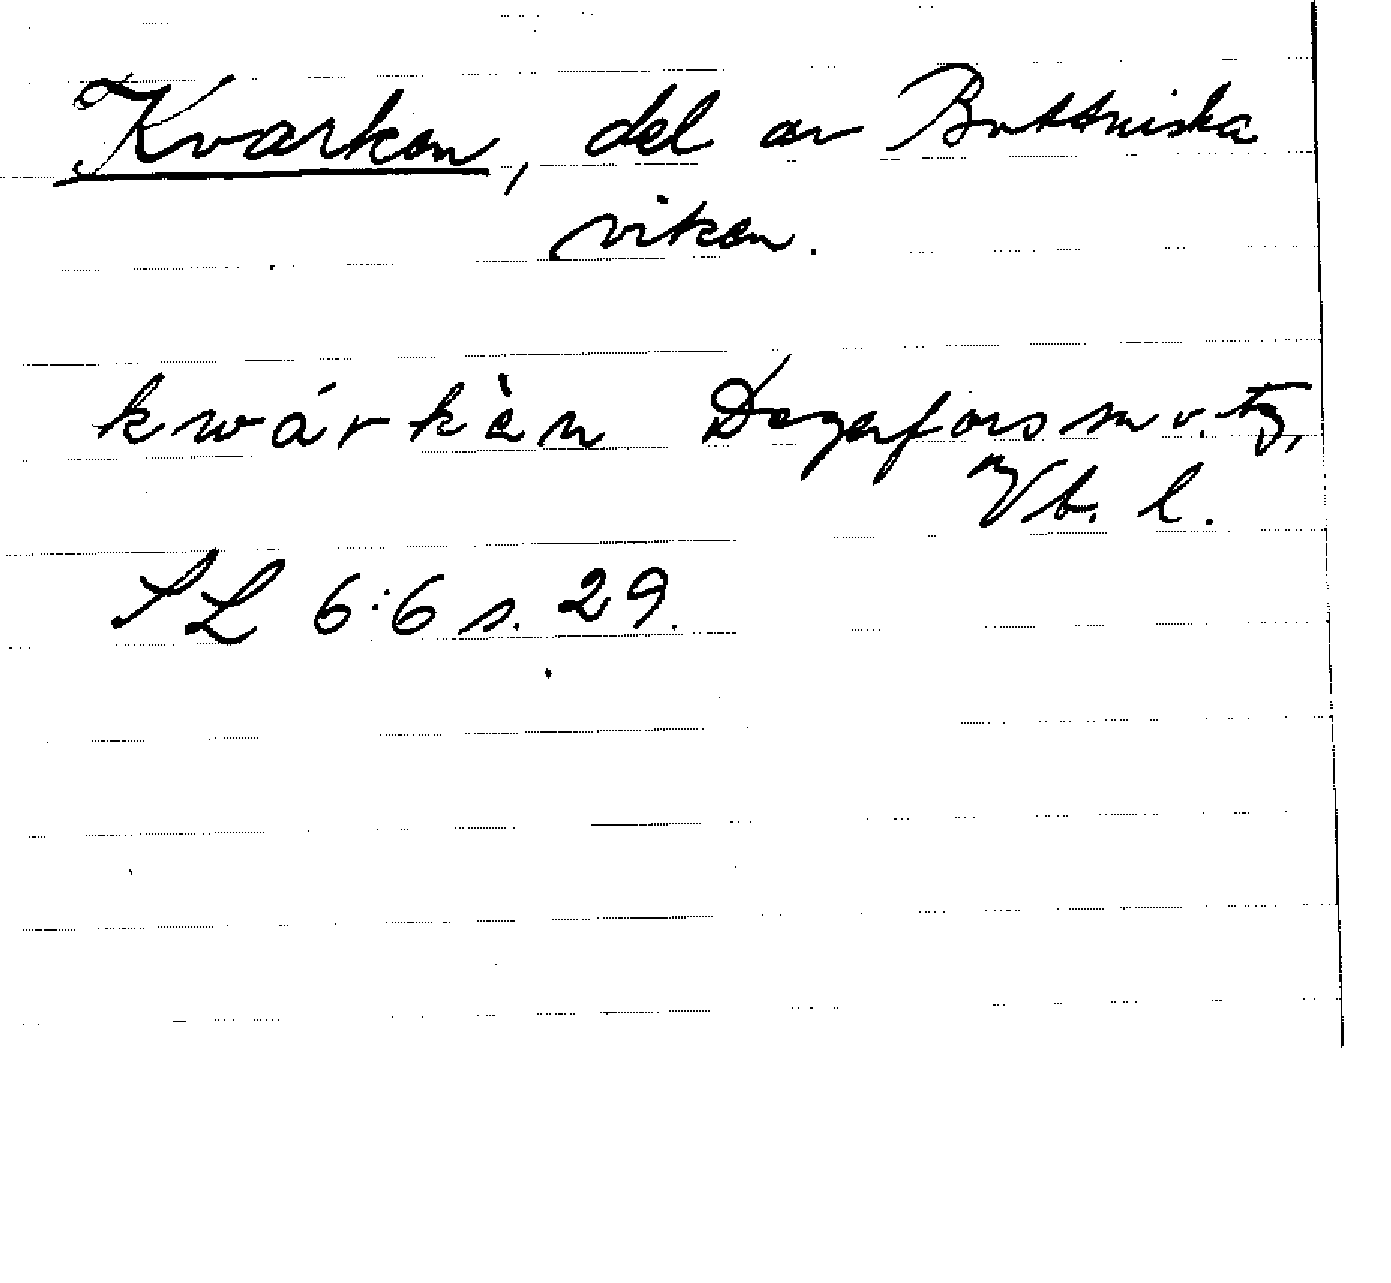 Kvarken, del av Bottniska
viken.
kwárkèn Degerfors sn v. tg,
Vb. l.
SL 6:6 s. 29.